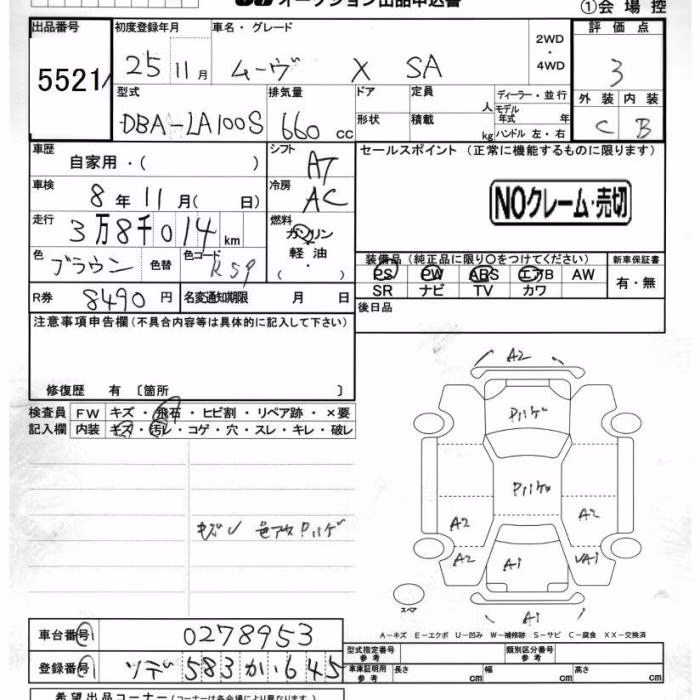 オークション出品申込書
①会場控
出品番号
5521
初度登録年月
25 11月
車名・グレード
ムーヴ X SA
2WD・4WD
評価点
3
型式
DBA-LA100S
排気量
660 cc
ドア
形状
定員 人
積載 kg
ディーラー・並行
モデル年式 年
ハンドル 左・右
外装 内装
C B
車歴
自家用・( )
シフト
AT
セールスポイント (正常に機能するものに限ります)
車検
8年11月( 日)
冷房
AC
NOクレーム・売切
走行
3万8千014km
燃料
ガソリン
軽油
・
色
ブラウン
色替
色コード
R59
装備品 (純正品に限り○をつけてください)
PS PW ABS エアB AW
SR ナビ TV カワ
新車保証書
有・無
R券
8490円
名変通知期限 月 日
後日品
注意事項申告欄 (不具合内容等は具体的に記入して下さい)
修復歴 有 〔箇所 〕
検査員記入欄
FW キズ・飛石・ヒビ割・リペア跡・×要
内装 キズ・汚レ・コゲ・穴・スレ・キレ・破レ
A2
Pハゲ
Pハゲ
A2
A2
A2
A1
UA1
スペア
A1
A-キズ E-エクボ U-凹み W-補修跡 S-サビ C-腐食 XX-交換済
車台番号
0278953
登録番号
583 か 645
型式指定番号 参考
類別区分番号 参考
車庫証明用 参考
長さ cm
幅 cm
高さ cm
希望出品コーナー (コーナーは各会場により異なります)